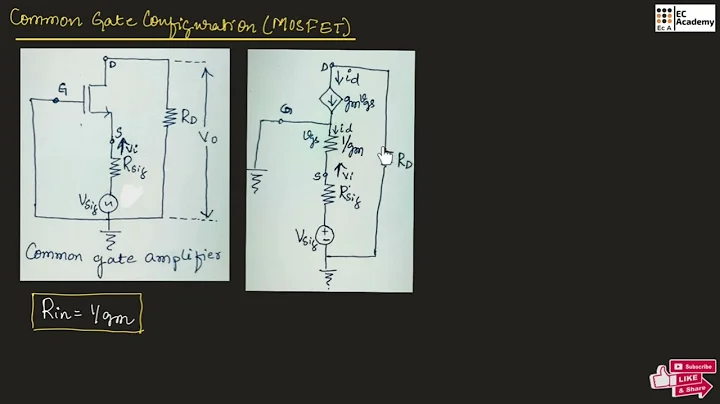 Common Gate Configuration (MOSFET)
EC
Academy
Ec A
D
G
S
Vi
Rsig
Vsig
RD
Vo
Common gate amplifier
D
id
gmVgs
G
Vgs
id
1/gm
S
Vi
Rsig
Vsig
RD
Rin = 1/gm
Subscribe
LIKE
& Share